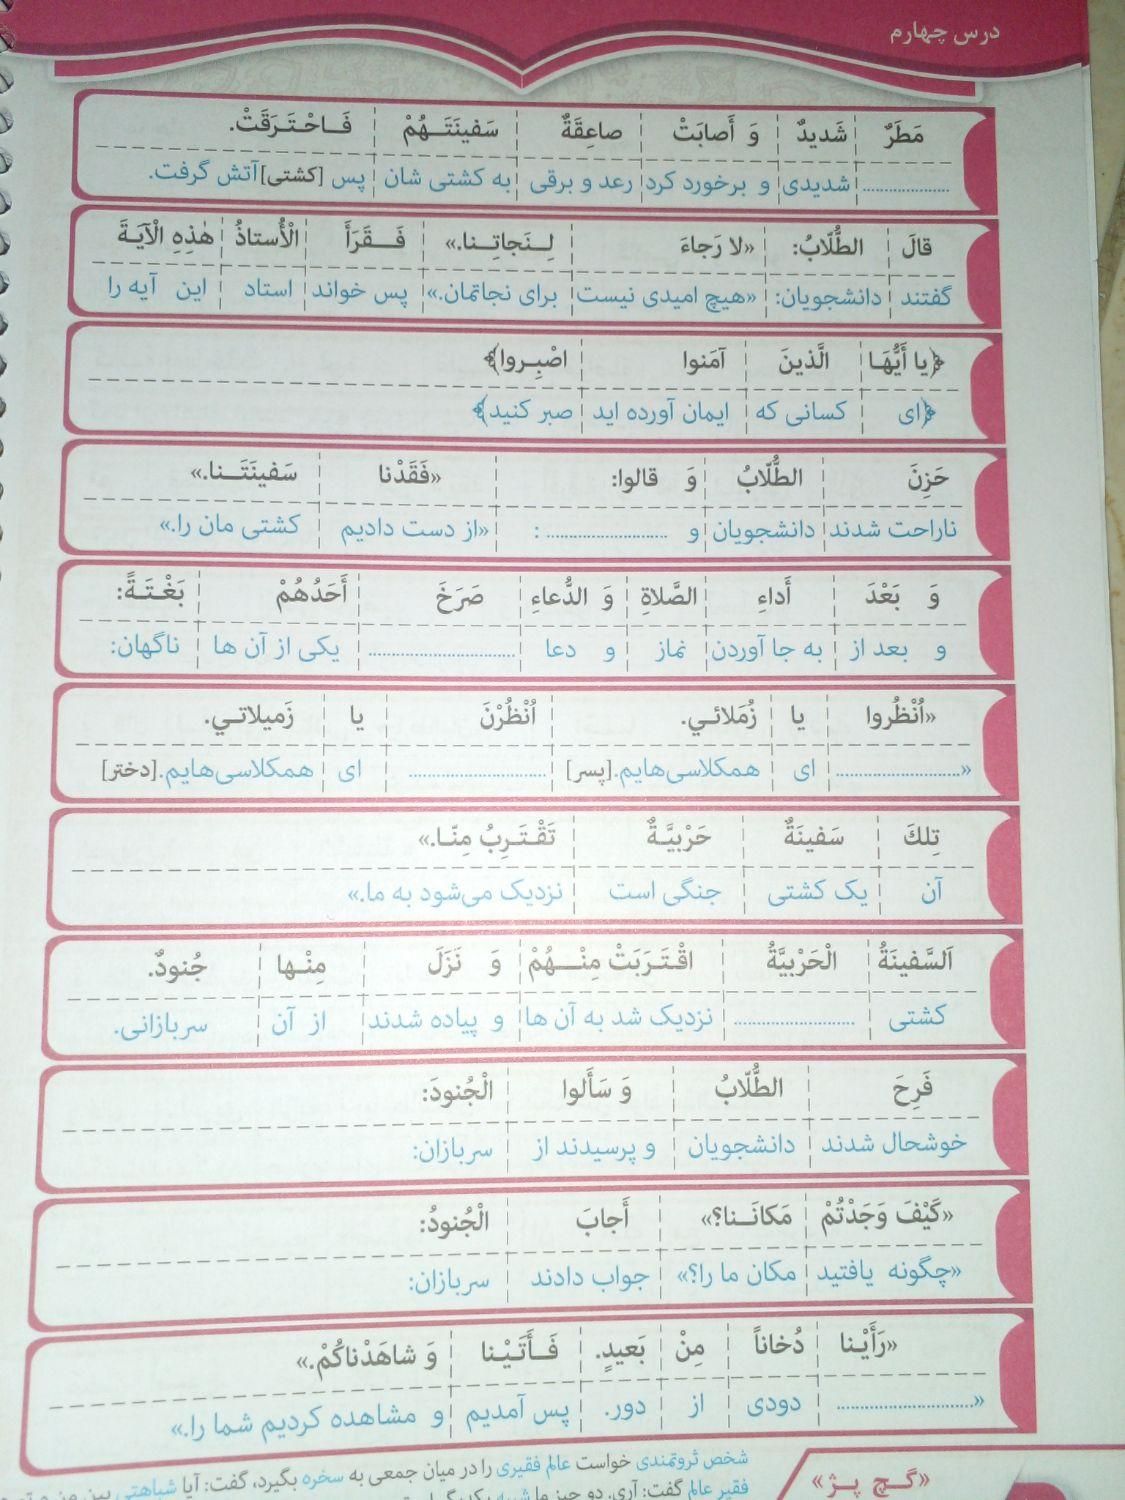 درس چهارم
مَطَرٌ شَديدٌ وَ أَصابَتْ صاعِقَةٌ سَفينَتَـهُمْ فَـاحْتَرَقَتْ.
.................... شدیدی و برخورد کرد رعد و برقی به کشتی شان پس [کشتی] آتش گرفت.
قالَ الطُّلّابُ: «لا رَجاءَ لِـنَجاتِـنا.» فَـقَرَأَ الْأُستاذُ هٰذِهِ الْآيَةَ
گفتند دانشجویان: «هیچ امیدی نیست برای نجاتمان.» پس خواند استاد این آیه را
﴿يا أَيُّهَا الَّذينَ آمَنوا اصْبِروا﴾
﴿ای کسانی که ایمان آورده اید صبر کنید﴾
حَزِنَ الطُّلّابُ وَ قالوا: «فَقَدْنا سَفينَتَـنا.»
ناراحت شدند دانشجویان و .................... : «از دست دادیم کشتی مان را.»
وَ بَعْدَ أَداءِ الصَّلاةِ وَ الدُّعاءِ صَرَخَ أَحَدُهُمْ بَغْتَةً:
و بعد از به جا آوردن نماز و دعا .................... یکی از آن ها ناگهان:
«اُنْظُروا يا زُمَلائي. اُنْظُرْنَ يا زَميلاتي.
«.................... ای همکلاسی‌هایم.[پسر] .................... ای همکلاسی‌هایم.[دختر]
تِلكَ سَفينَةٌ حَرْبيَّةٌ تَقْتَرِبُ مِنّا.»
آن یک کشتی جنگی است نزدیک می‌شود به ما.»
اَلسَّفينَةُ الْحَرْبيَّةُ اقْتَرَبَتْ مِنْـهُمْ وَ نَزَلَ مِنْها جُنودٌ.
کشتی .................... نزدیک شد به آن ها و پیاده شدند از آن سربازانی.
فَرِحَ الطُّلّابُ وَ سَأَلوا الْجُنودَ:
خوشحال شدند دانشجویان و پرسیدند از سربازان:
«كَيْفَ وَجَدْتُمْ مَكانَـنا؟» أَجابَ الْجُنودُ:
«چگونه یافتید مکان ما را؟» جواب دادند سربازان:
«رَأَيْنا دُخاناً مِنْ بَعيدٍ. فَـأَتَيْنا وَ شاهَدْناكُمْ.»
«.................... دودی از دور. پس آمدیم و مشاهده کردیم شما را.»
«گـچ پـژ»
شخص ثروتمندی خواست عالم فقیری را در میان جمعی به سخره بگیرد، گفت: آیا شباهتی بین من و تو
فقیر عالم گفت: آری. دو چیز ما شبیه